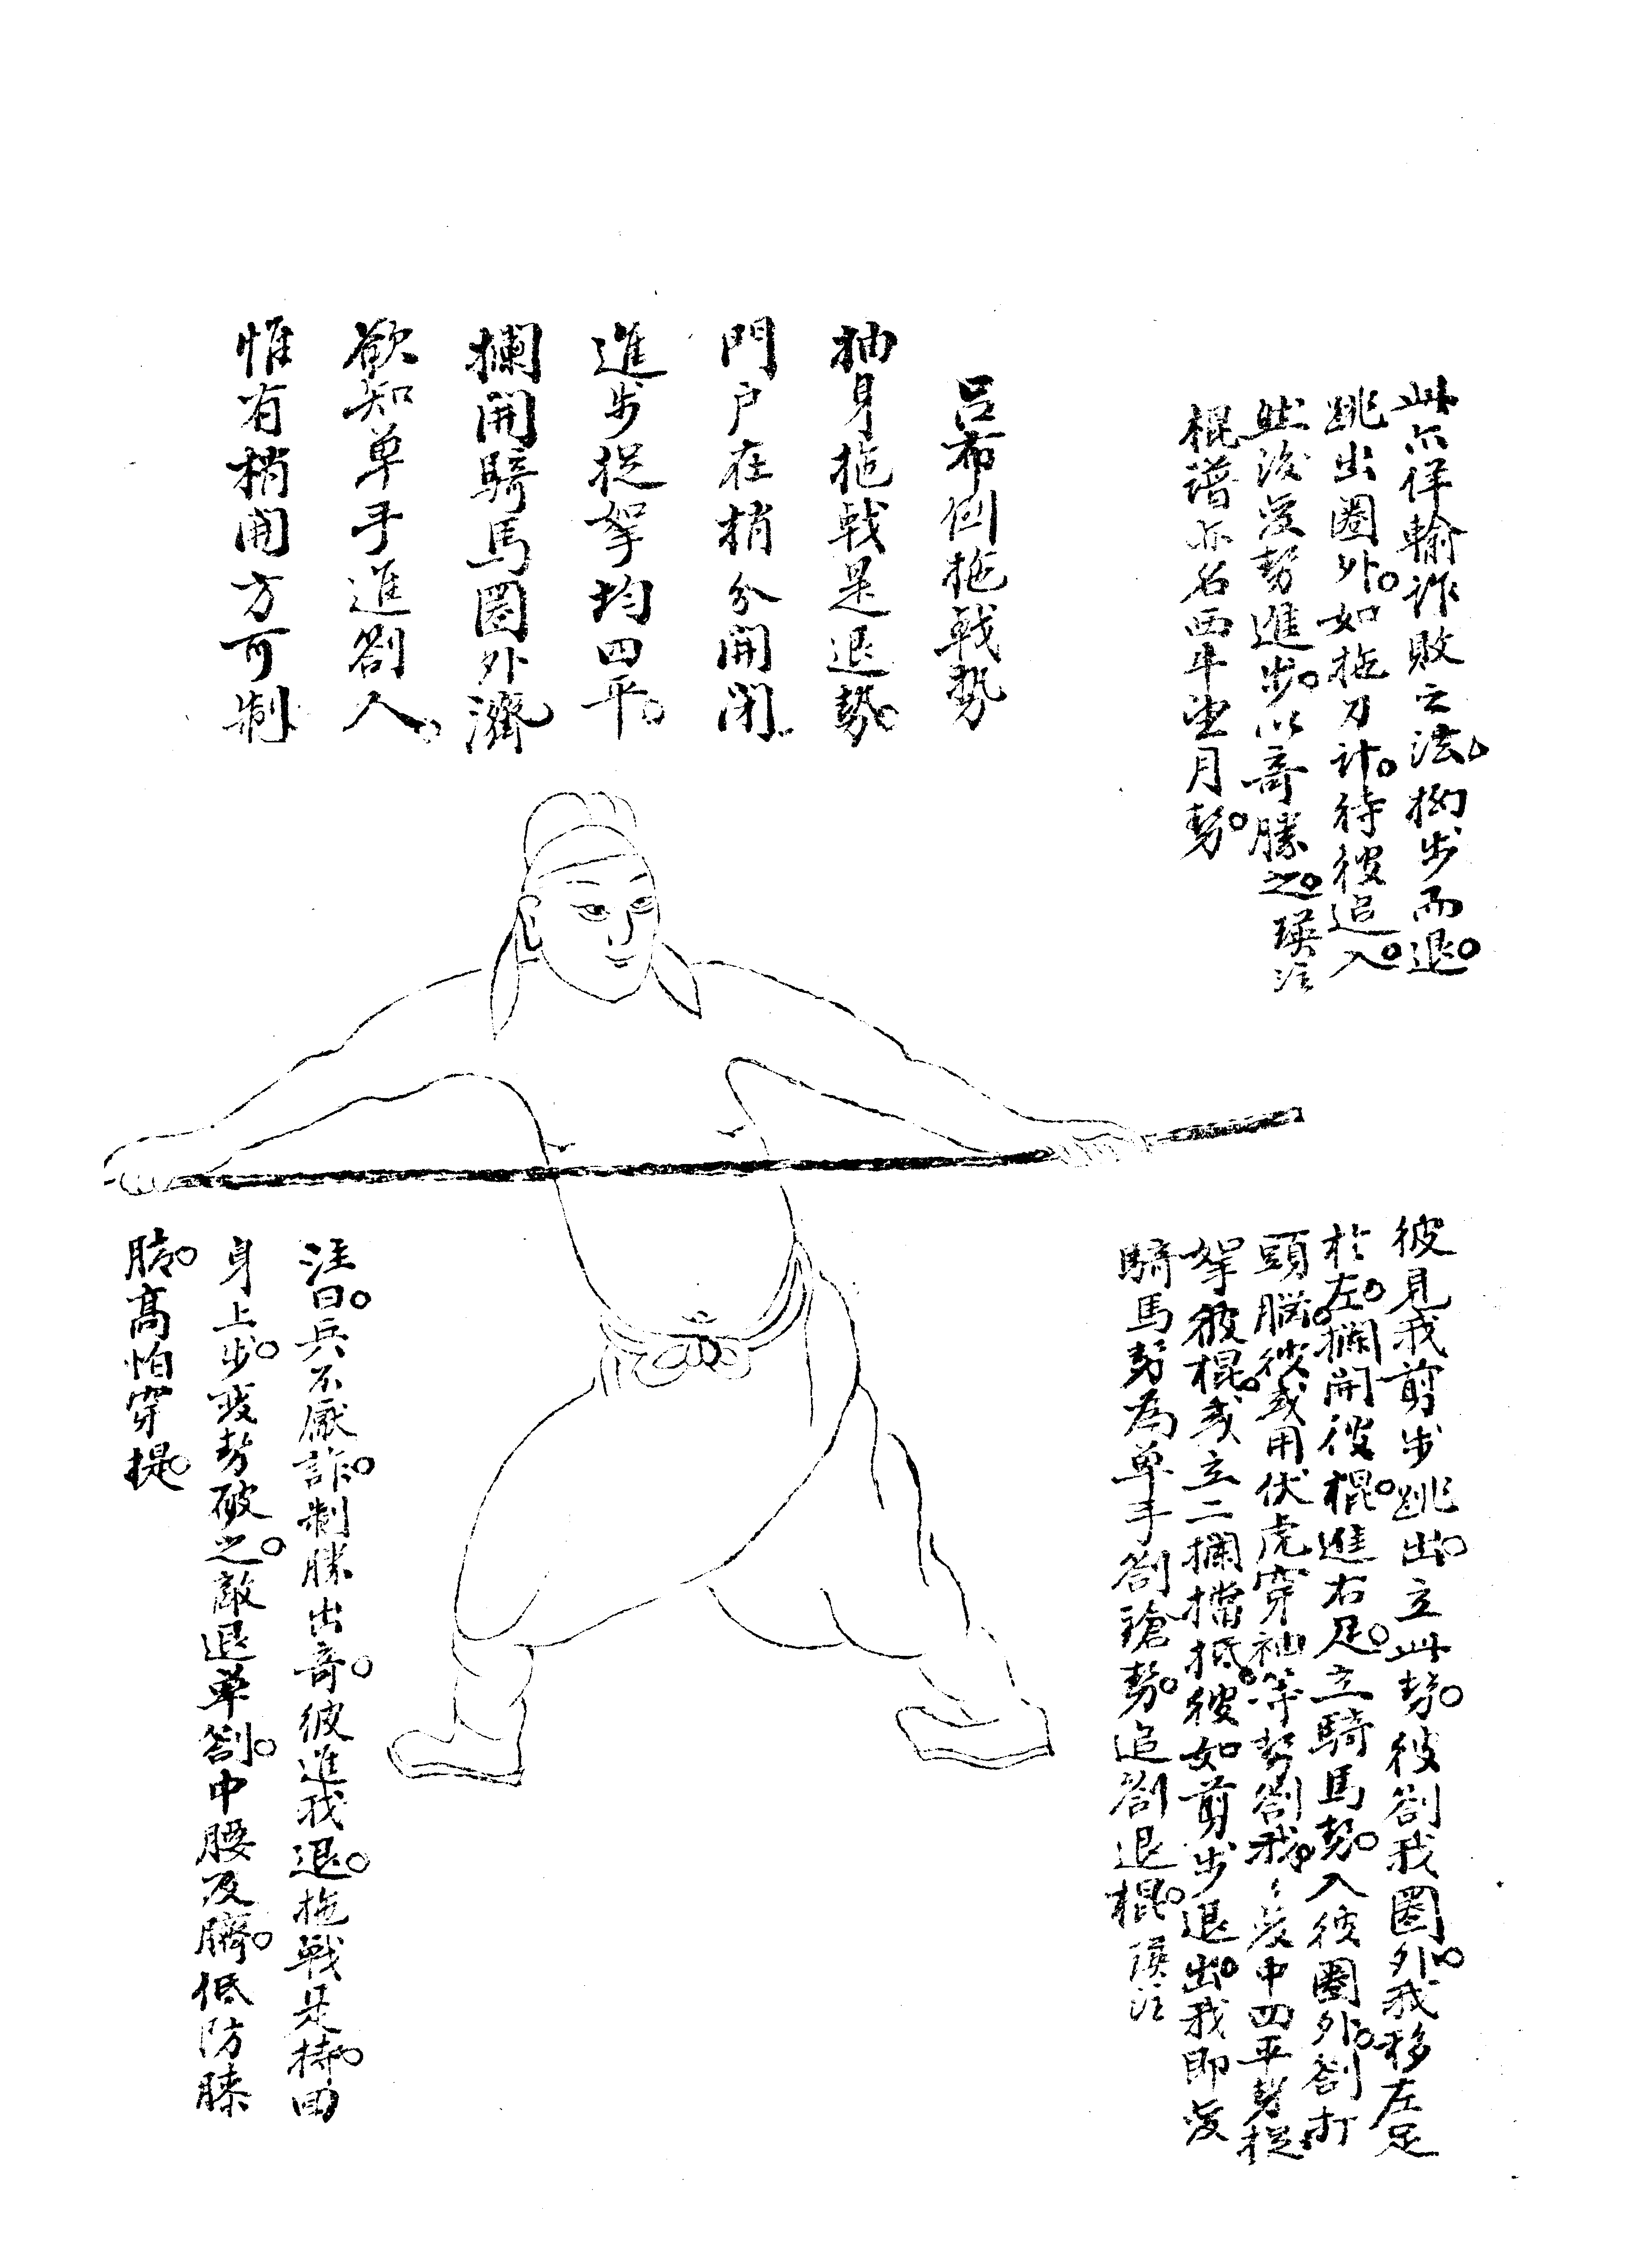 此亦佯輸詐敗之法拗步而退。
跳出圈外。如拖刀計。待彼追入。
然後變勢進步。以奇勝之。瑛注
棍譜亦名西牛望月勢。
呂布倒拖戟勢
抽身拖戟是退勢。
門户在梢分開閉
進步捉拏均四平。
攔開騎馬圈外濟
欲知单手進劄人。
惟有梢開方可制
彼見我剪步跳出。立此勢。彼劄我圈外。我移左足
於左。攔開彼棍。進右足。立騎馬勢。入彼圈外。劄打
頭腦。彼或用伏虎穿袖等勢劄我。變中四平勢捉
拏彼棍。或立二攔擋抵。彼如剪步退出。我即变
騎馬勢為单手劄鎗勢。追劄退棍。瑛注
注曰。兵不厭詐。制勝出奇。彼進我退。拖戟是持。回
身上步。变勢破之。敵退单劄。中腰及臍。低防膝
脚。高怕穿提。